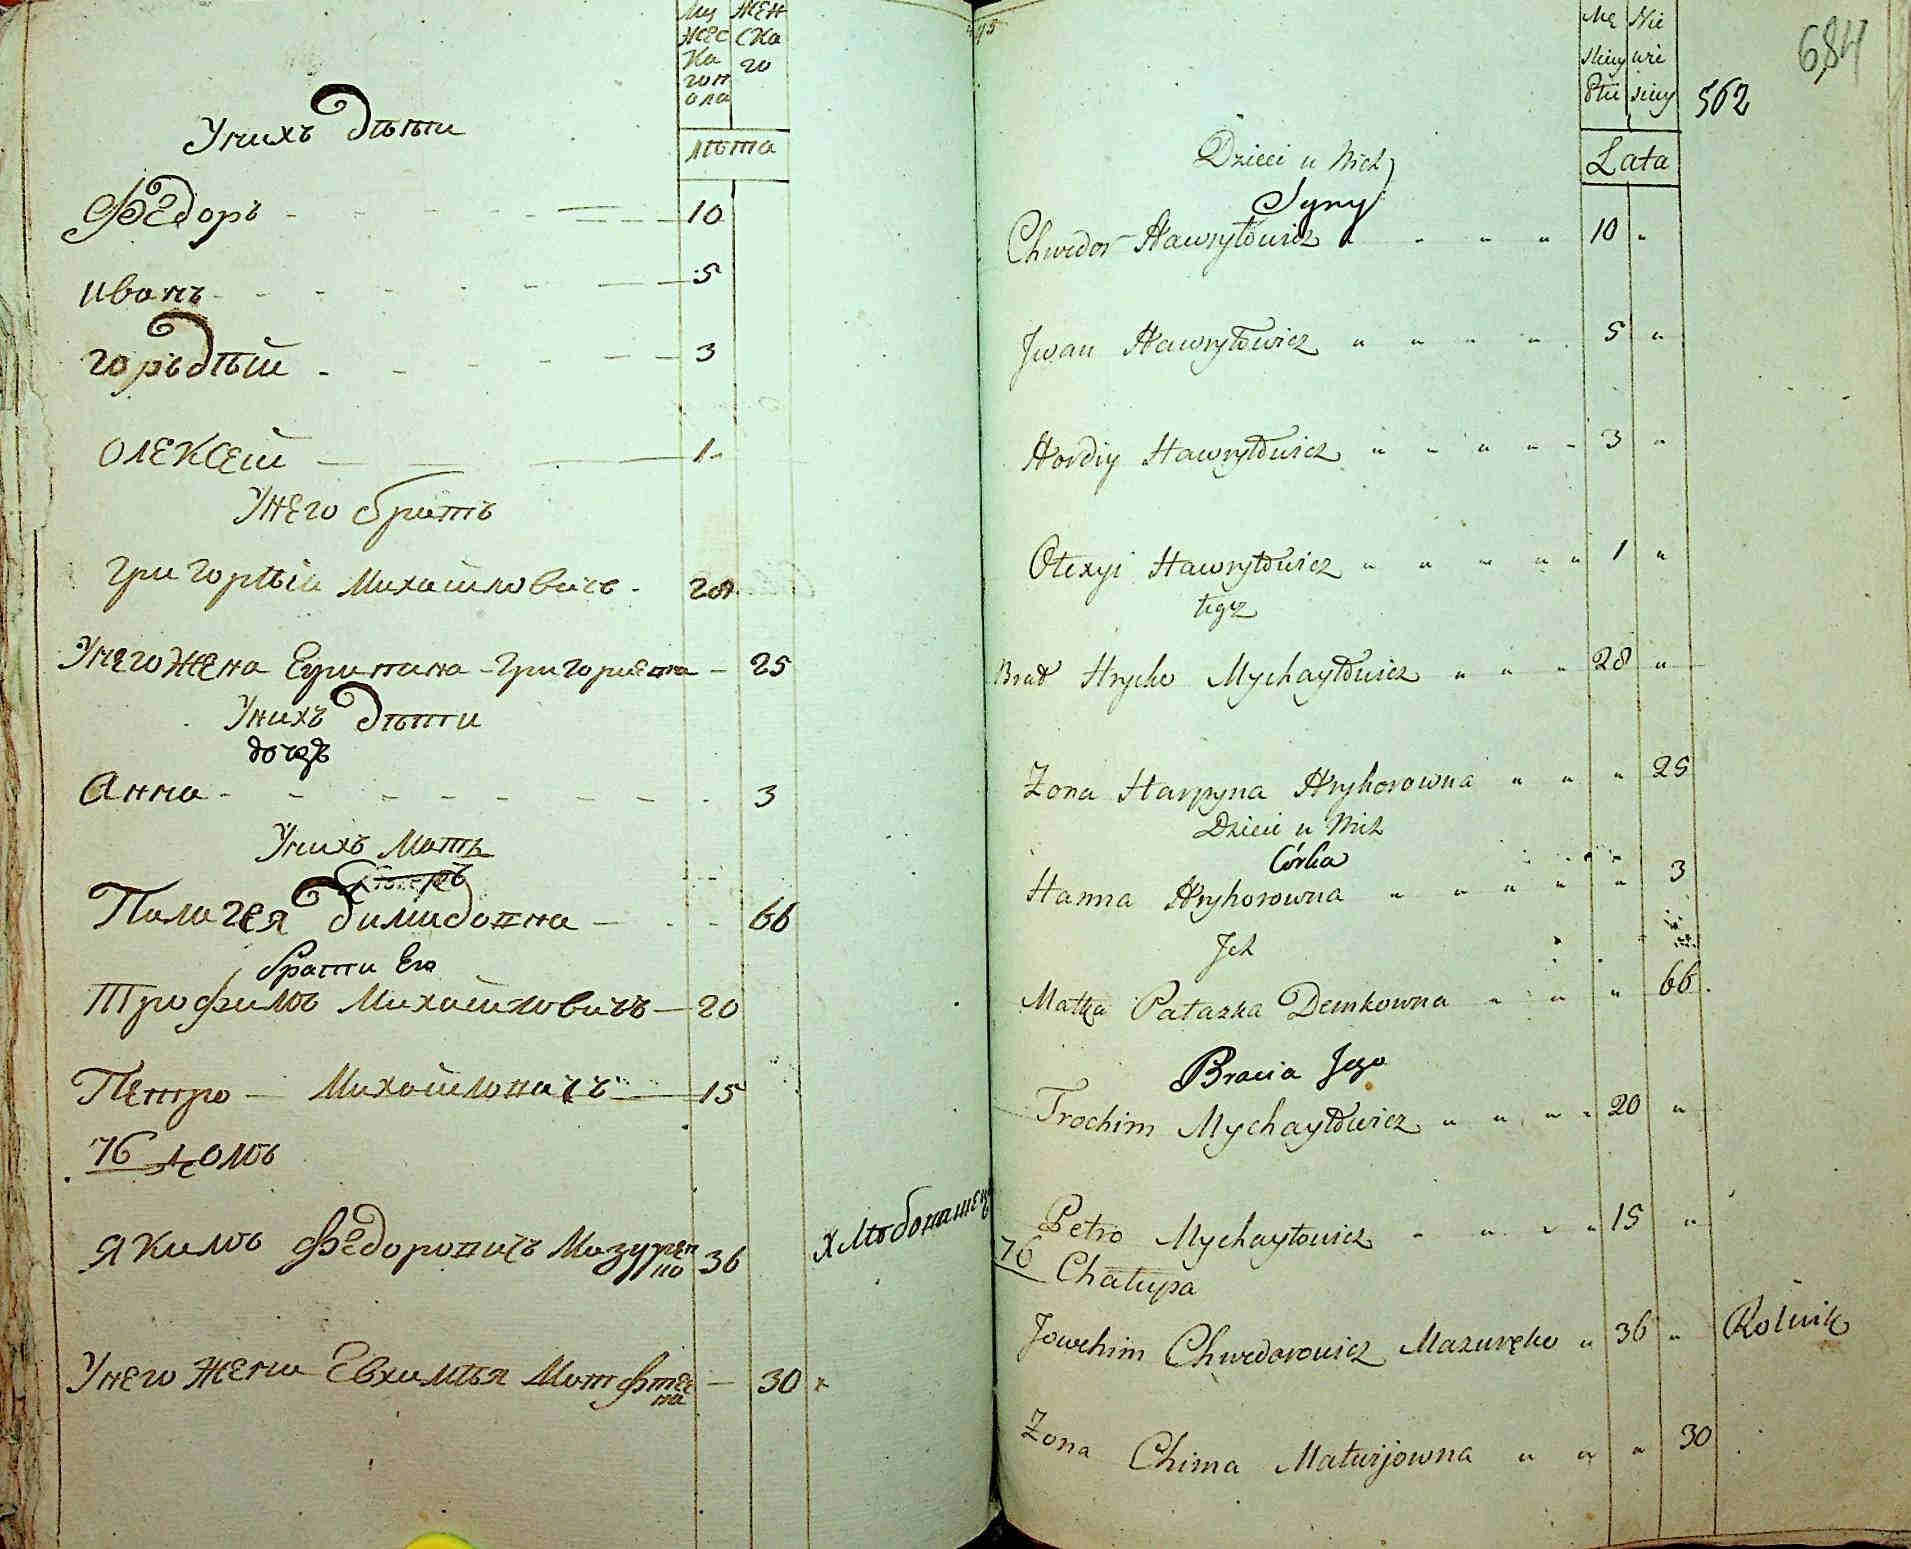 Му ЖЕН
жес ска
ка го
гоп
ола
Унихъ дѣти
лѣта
Фёдоръ 10
иванъ 5
горьдѣй 3
олексей 1
Унего братъ
григорѣй Михайловичъ 28
Унего жена Еурипина григориевна 25
Унихъ дѣти
дочъ
Анна 3
Унихъ Мать
Палагея димидовна 66
брати Его
трофимъ Михайловичъ 20
Петро Михайловичъ 15
76 домъ
якимъ федоровичъ Мазурен
ко 36 хлѣбопашец
Унего жена Евхимѣя Матфѣев
на 30
45
Mę Nie
skiey wie
Płci sciey
562
684
Lata
Dzieci u Nich
Syny
Chwedor Hawryłowicz " " " " 10 "
Jwan Hawryłowicz " " " " 5 "
Hordiy Hawryłowicz " " " " " 3 "
Ołexyi Hawryłowicz " " " " " 1 "
tegoz
Brat Hrycko Mychayłowicz " " " 28 "
Żona Harpyna Hryhorowna " " " 25
Dzieci u Nich
Córka
Hanna Hryhorowna " " " " " 3
Jch
Matka Pałazka Demkowna " " " 66
Bracia Jego
Trochim Mychayłowicz " " " " 20 "
Petro Mychayłowicz " " " " 15 "
76 Chałupa
Jowchim Chwedorowicz Mazuręko " 36 " Rolnik
Żona Chima Matwijowna " " " 30